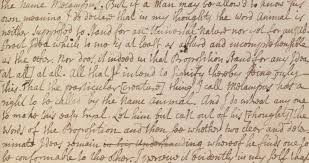 the Name Melampus. But, if a Man may be allow'd to know his
own meaning, I do declare that in my thoughts the word Animal is
neither supposed to stand for an Universal Nature nor yet for an
abstract Idea which to me is at least as absurd and incomprehensible
as the other. Nor does it indeed in that Proposition stand for any Idea
at all. All that I intend to signify thereby being only
this. That the particular creature thing I call Melampus has a
right to be called by the Name Animal. And I do intreat any one
to make this easy tryal. Let him but cast out of his thoughts the
Words of the Proposition and then see whether two clear and determinate
Ideas remain whereof he finds one to be
conformable to the other. I perceive it evidently in my self